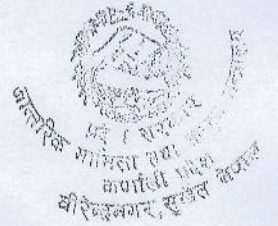 प्रदेश सरकार
आन्तरिक मामिला तथा कानून मन्त्रालय
कर्णाली प्रदेश
वीरेन्द्रनगर, सुर्खेत नेपाल